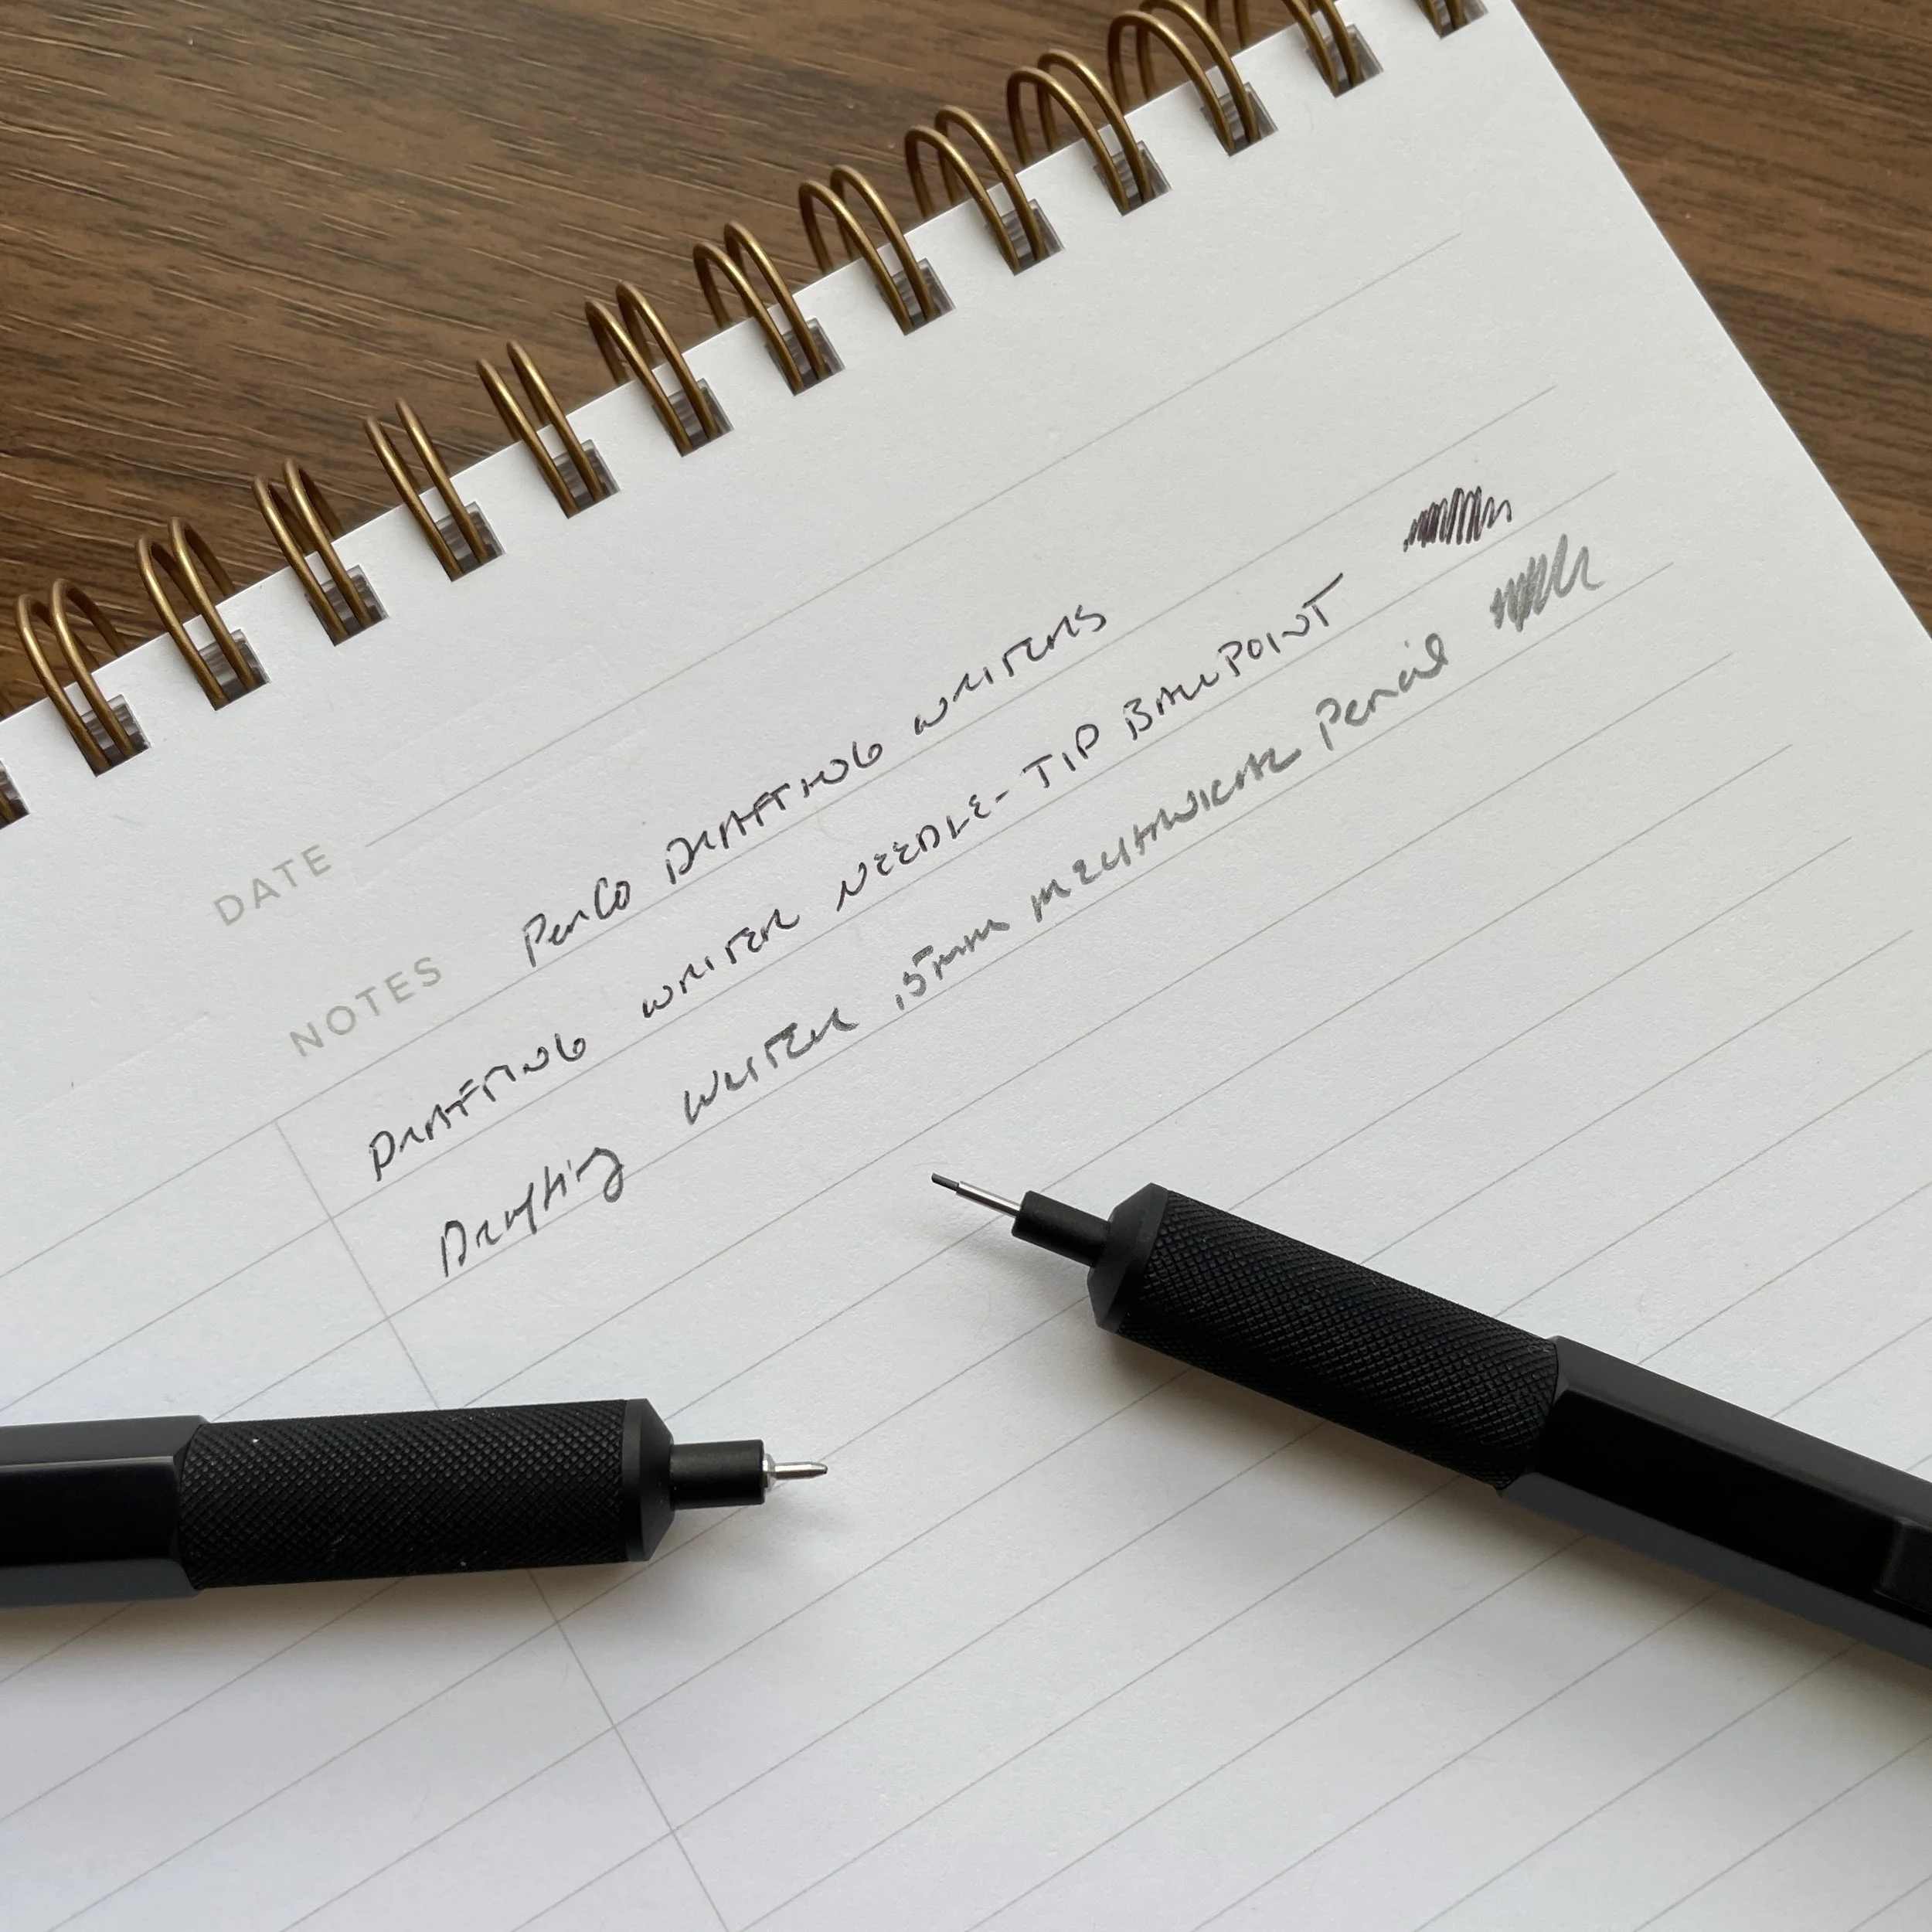 DATE
NOTES PenCo DRAFTING WRITERS
DRAFTING WRITER NEEDLE-TIP BALLPOINT
Drafting WRITER .5mm MECHANICAL Pencil